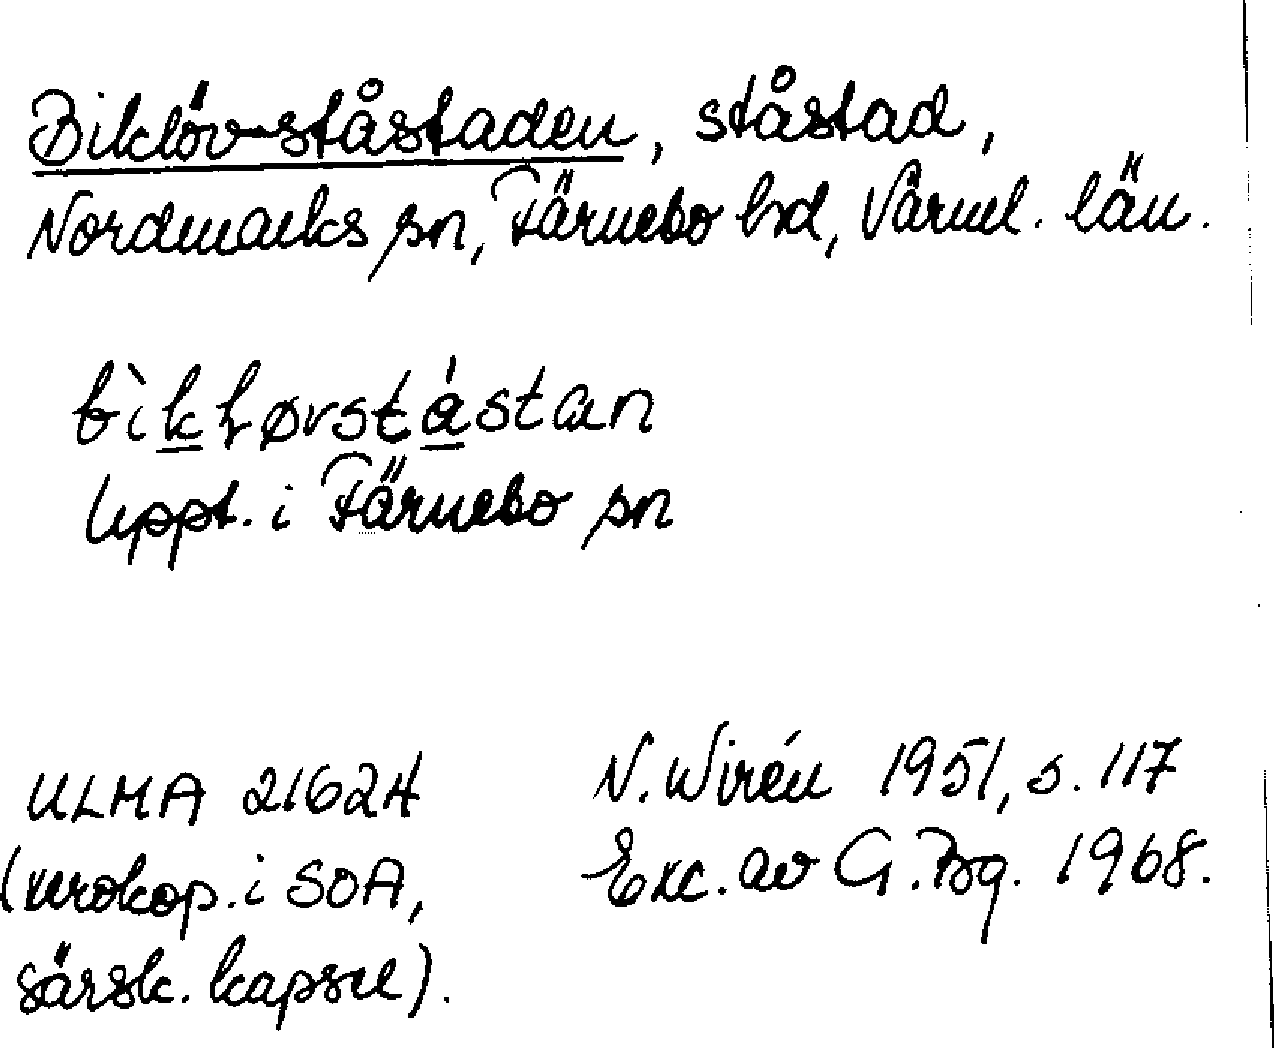 Biklöv-ståstaden, ståstad,
Nordmarks sn, Färnebo hd, Värml. län.
bìkløvstástan
Uppt. i Färnebo sn
ULMA 21624
N. Wirén 1951, s. 117
(xerokop. i SOA,
Exc. av G. Bg. 1968.
särsk. kapsel).